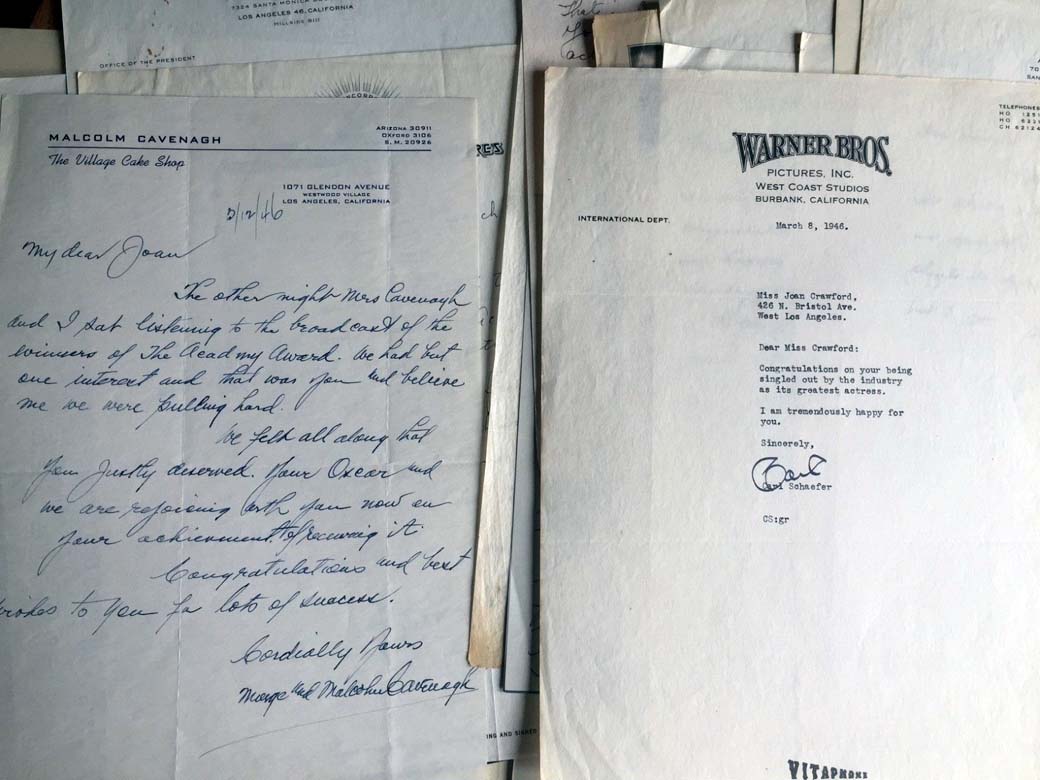 7324 SANTA MONICA
LOS ANGELES 46, CALIFORNIA
HILLSIDE
OFFICE OF THE PRESIDENT
MALCOLM CAVENAGH
The Village Cake Shop
ARIZONA 30911
OXFORD 3106
S. M. 20926
1071 GLENDON AVENUE
WESTWOOD VILLAGE
LOS ANGELES, CALIFORNIA
3/12/46
My dear Joan
The other night Mrs Cavenagh
and I sat listening to the broadcast of the
winners of The Academy Award. We had but
one interest and that was you and believe
me we were pulling hard.
We felt all along that
you justly deserved. Your Oscar and
we are rejoicing with you now on
your achievement of receiving it
Congratulations and best
wishes to you for lots of success.
Cordially Yours
Marge and Malcolm Cavenagh
That
ING AND SIGNED
TELEPHONES
WARNER BROS.
PICTURES, INC.
WEST COAST STUDIOS
BURBANK, CALIFORNIA
INTERNATIONAL DEPT.
March 8, 1946.
Miss Joan Crawford,
426 N. Bristol Ave.
West Los Angeles.
Dear Miss Crawford:
Congratulations on your being
singled out by the industry
as its greatest actress.
I am tremendously happy for
you.
Sincerely,
Carl
Carl Schaefer
CS:gr
VITAPHONE